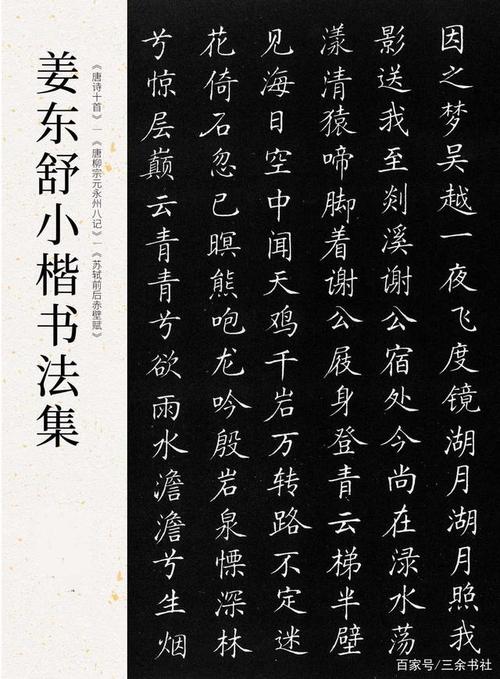 姜东舒小楷书法集
《唐诗十首》—《唐柳宗元永州八记》—《苏轼前后赤壁赋》
因之梦吴越一夜飞度镜湖月湖月照我
影送我至剡溪谢公宿处今尚在渌水荡
漾清猿啼脚着谢公屐身登青云梯半壁
见海日空中闻天鸡千岩万转路不定迷
花倚石忽已暝熊咆龙吟殷岩泉慄深林
兮惊层巅云青青兮欲雨水澹澹兮生烟
百家号/三余书社